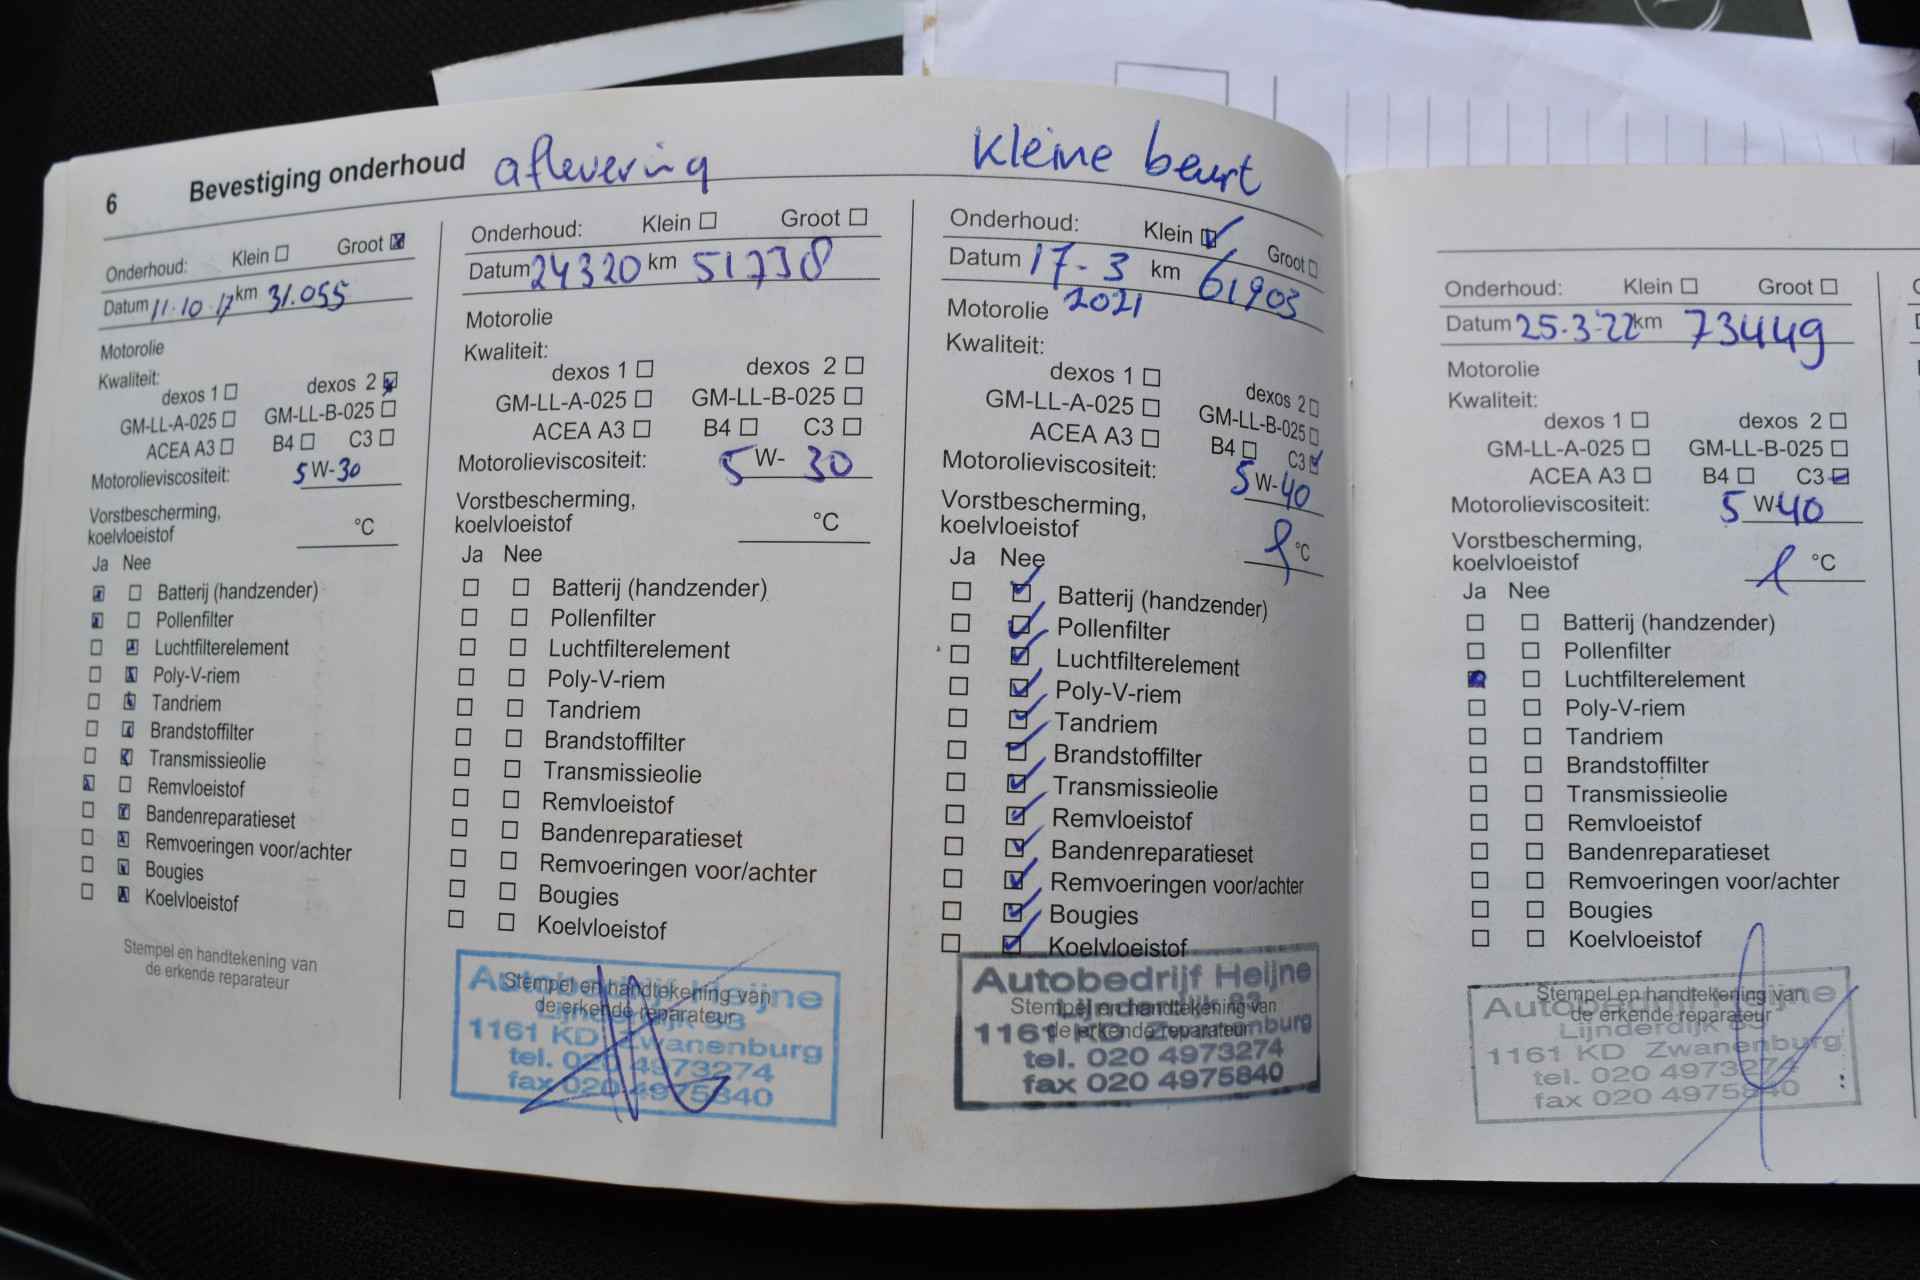 6 Bevestiging onderhoud aflevering kleine beurt
Onderhoud: Klein Groot
Datum 11-10-17 km 31.055
Motorolie
Kwaliteit:
dexos 1 dexos 2
GM-LL-A-025 GM-LL-B-025
ACEA A3 B4 C3
Motorolieviscositeit: 5 W-30
Vorstbescherming,
koelvloeistof °C
Ja Nee
Batterij (handzender)
Pollenfilter
Luchtfilterelement
Poly-V-riem
Tandriem
Brandstoffilter
Transmissieolie
Remvloeistof
Bandenreparatieset
Remvoeringen voor/achter
Bougies
Koelvloeistof
Stempel en handtekening van
de erkende reparateur
Onderhoud: Klein Groot
Datum 24320 km 51738
Motorolie
Kwaliteit:
dexos 1 dexos 2
GM-LL-A-025 GM-LL-B-025
ACEA A3 B4 C3
Motorolieviscositeit: 5 W- 30
Vorstbescherming,
koelvloeistof °C
Ja Nee
Batterij (handzender)
Pollenfilter
Luchtfilterelement
Poly-V-riem
Tandriem
Brandstoffilter
Transmissieolie
Remvloeistof
Bandenreparatieset
Remvoeringen voor/achter
Bougies
Koelvloeistof
Autobedrijf Heijne
Stempel en handtekening van
de erkende reparateur
Lijnderdijk 83
1161 KD Zwanenburg
tel. 020 4973274
fax 020 4975840
Onderhoud: Klein Groot
Datum 17-3 km 61903
2021
Motorolie
Kwaliteit:
dexos 1 dexos 2
GM-LL-A-025 GM-LL-B-025
ACEA A3 B4 C3
Motorolieviscositeit: 5 W-40
Vorstbescherming,
koelvloeistof °C
Ja Nee
Batterij (handzender)
Pollenfilter
Luchtfilterelement
Poly-V-riem
Tandriem
Brandstoffilter
Transmissieolie
Remvloeistof
Bandenreparatieset
Remvoeringen voor/achter
Bougies
Koelvloeistof
Autobedrijf Heijne
Stempel en handtekening van
Lijnderdijk 83
de erkende reparateur
1161 KD Zwanenburg
tel. 020 4973274
fax 020 4975840
Onderhoud: Klein Groot
Datum 25-3-'22 km 73449
Motorolie
Kwaliteit:
dexos 1 dexos 2
GM-LL-A-025 GM-LL-B-025
ACEA A3 B4 C3
Motorolieviscositeit: 5 W-40
Vorstbescherming,
koelvloeistof °C
Ja Nee
Batterij (handzender)
Pollenfilter
Luchtfilterelement
Poly-V-riem
Tandriem
Brandstoffilter
Transmissieolie
Remvloeistof
Bandenreparatieset
Remvoeringen voor/achter
Bougies
Koelvloeistof
Stempel en handtekening van
Autobedrijf Heijne
de erkende reparateur
Lijnderdijk 83
1161 KD Zwanenburg
tel. 020 4973274
fax 020 4975840